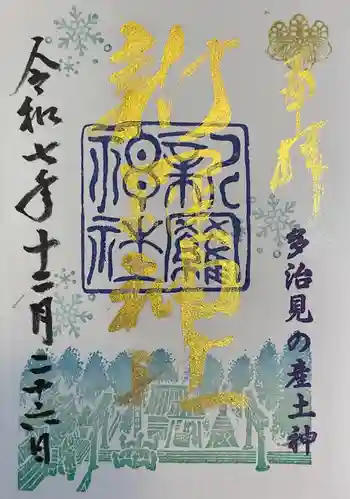 奉拝
多治見の産土神
新羅神社
新羅
神社
令和七年十二月二十六日